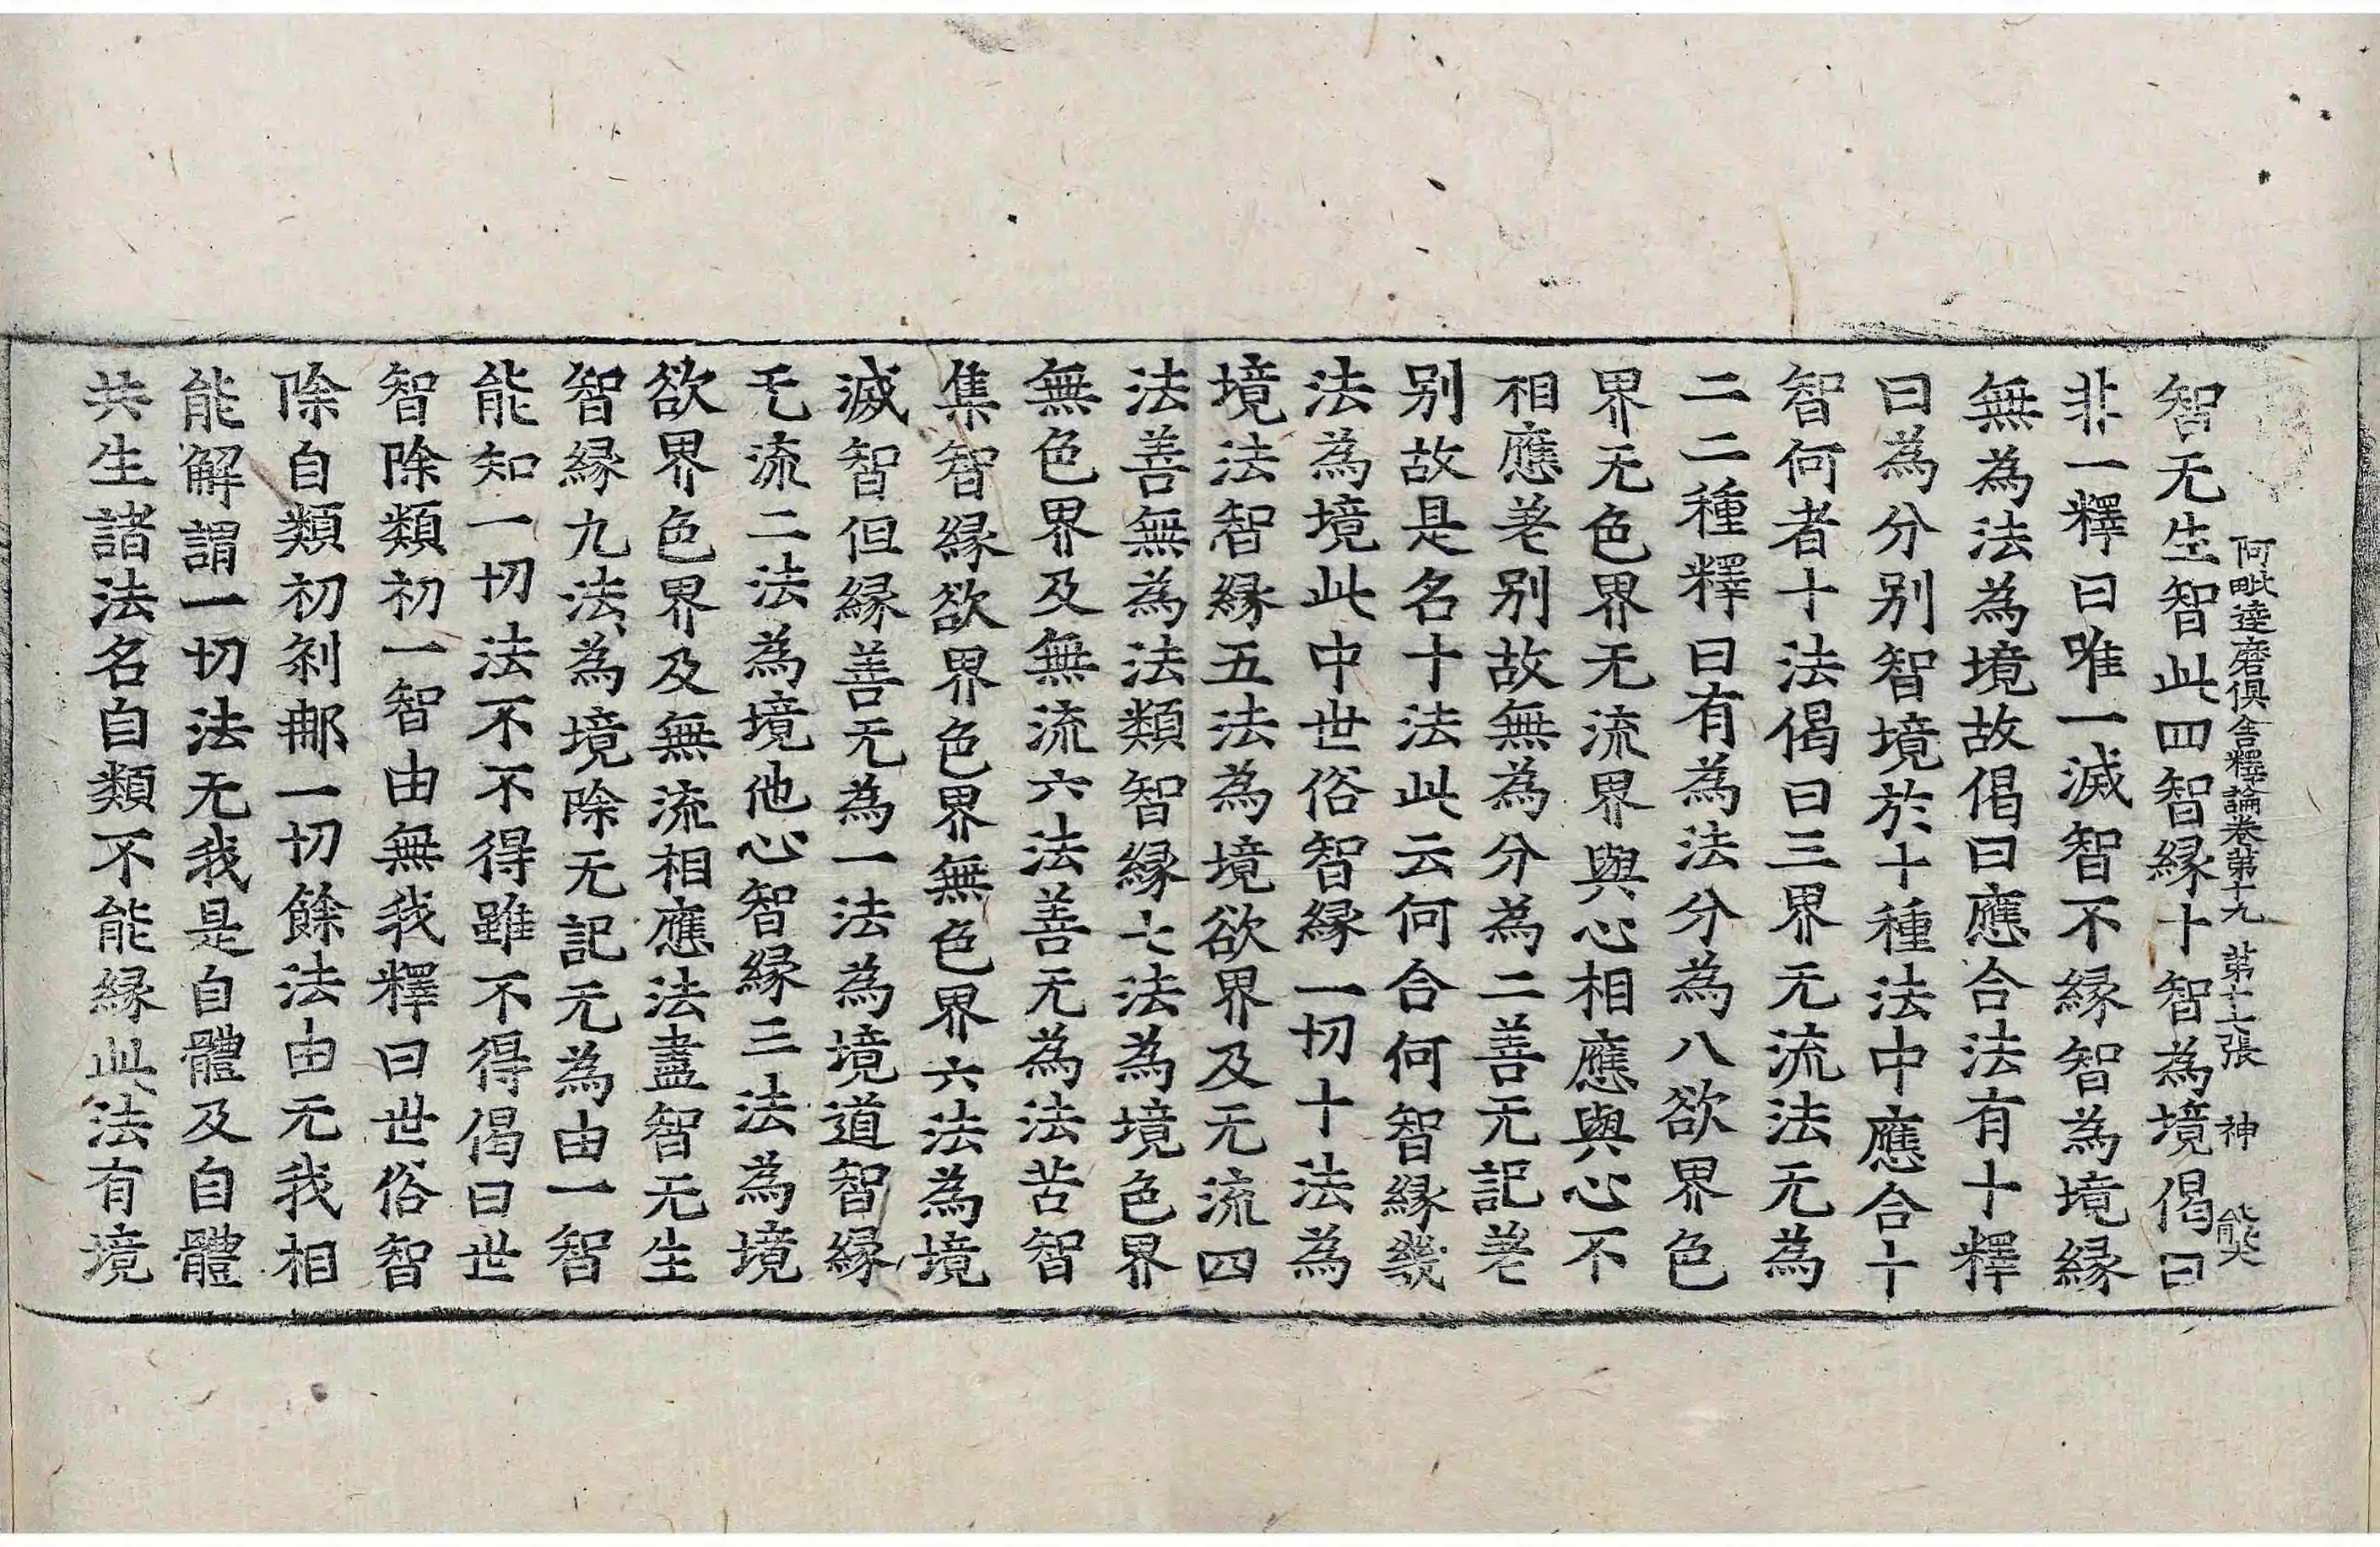 阿毗達磨俱舍釋論卷第十九 苐十二張 神 能
智无生智此四智縁十智為境偈曰
非一釋曰唯一滅智不縁智為境縁
無為法為境故偈曰應合法有十釋
曰為分别智境於十種法中應合十
智何者十法偈曰三界无流法无為
二二種釋曰有為法分為八欲界色
界无色界无流界與心相應與心不
相應差别故無為分為二善无記差
别故是名十法此云何合何智縁幾
法為境此中世俗智縁一切十法為
境法智縁五法為境欲界及无流四
法善無為法類智縁七法為境色界
無色界及無流六法善无為法苦智
集智縁欲界色界無色界六法為境
滅智但縁善无為一法為境道智縁
无流二法為境他心智縁三法為境
欲界色界及無流相應法盡智无生
智縁九法為境除无記无為由一智
能知一切法不不得雖不得偈曰世
智除類初一智由無我釋曰世俗智
除自類初刹那一切餘法由无我相
能解謂一切法无我是自體及自體
共生諸法名自類不能縁此法有境